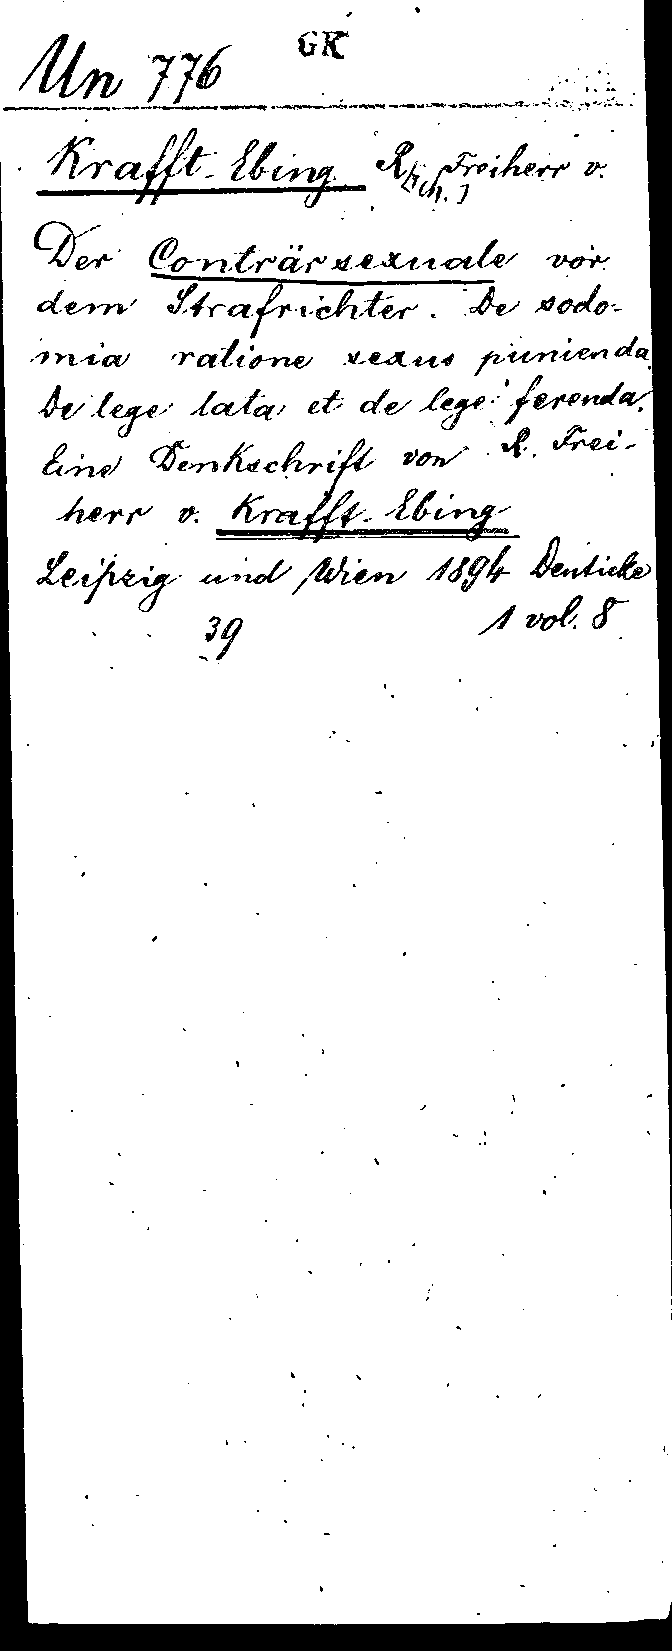 GK
Un 776
Krafft-Ebing R[ich.] Freiherr v.
Der Conträrsexuale vor
dem Strafrichter. De sodo-
mia ratione sexus punienda.
De lege lata et de lege ferenda.
Eine Denkschrift von R. Frei-
herr v. Krafft-Ebing
Leipzig und Wien 1894 Deuticke
39 1 vol. 8